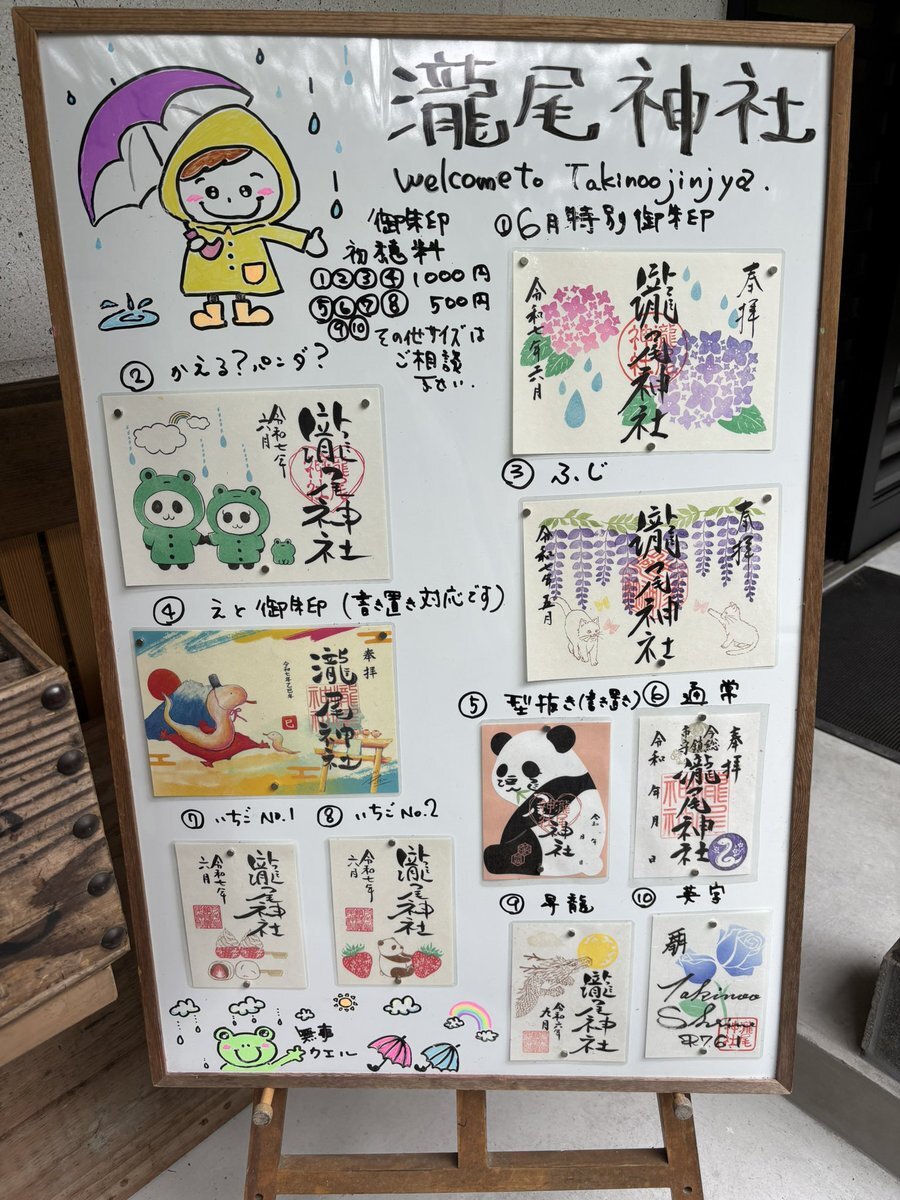 瀧尾神社
welcome to Takinoojinjya.
御朱印
初穂料
①②③④ 1000円
⑤⑥⑦⑧ 500円
⑨⑩ その他サイズは
ご相談
下さい.
①6月特別御朱印
奉拝
瀧尾神社
令和七年六月
②かえる?パンダ?
瀧尾神社
令和七年
六月
③ふじ
奉拝
瀧尾神社
令和七年五月
④えと御朱印(書き置き対応です)
奉拝
瀧尾神社
令和七年乙巳年
巳
⑤型抜き(書き置き)
瀧尾神社
令和 年 月 日
⑥通常
奉拝
瀧尾神社
令和 年 月 日
⑦いちごNo.1
瀧尾神社
令和七年
六月
⑧いちごNo.2
瀧尾神社
令和七年
六月
⑨昇龍
瀧尾神社
令和六年
九月
⑩英字
Takinoo
Shrine
R7.6.1
無事
カエル